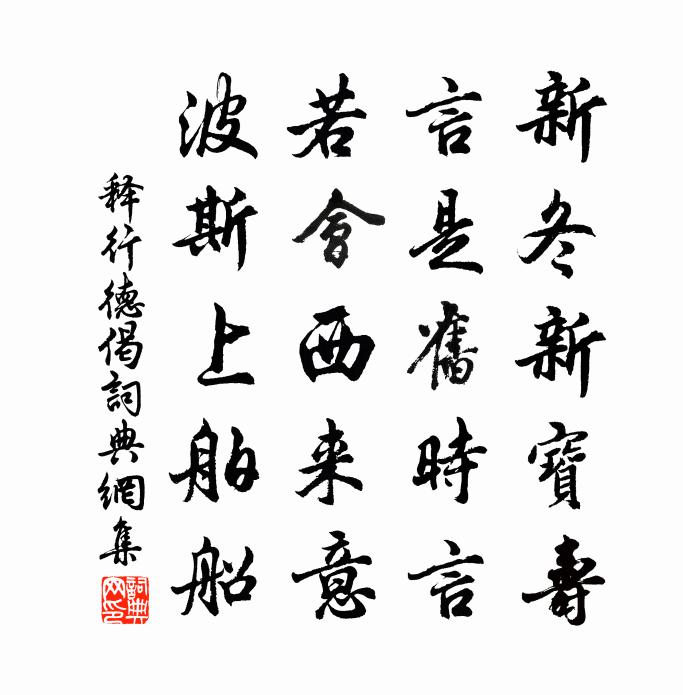 新冬新寶壽
言是舊時言
若會西来意
波斯上舶船
释行德偈詞典網集
詞典網印